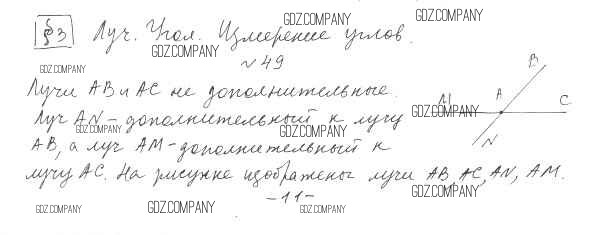 §3 Луч. Угол. Измерение углов.
№49
Лучи AB и AC не дополнительные.
Луч AN - дополнительный к лучу
AB, а луч AM - дополнительный к
лучу AC. На рисунке изображены лучи AB, AC, AN, AM.
-11-
B
M A C
N
GDZ.COMPANY
GDZ.COMPANY
GDZ.COMPANY
GDZ.COMPANY
GDZ.COMPANY
GDZ.COMPANY
GDZ.COMPANY
GDZ.COMPANY
GDZ.COMPANY
GDZ.COMPANY
GDZ.COMPANY
GDZ.COMPANY